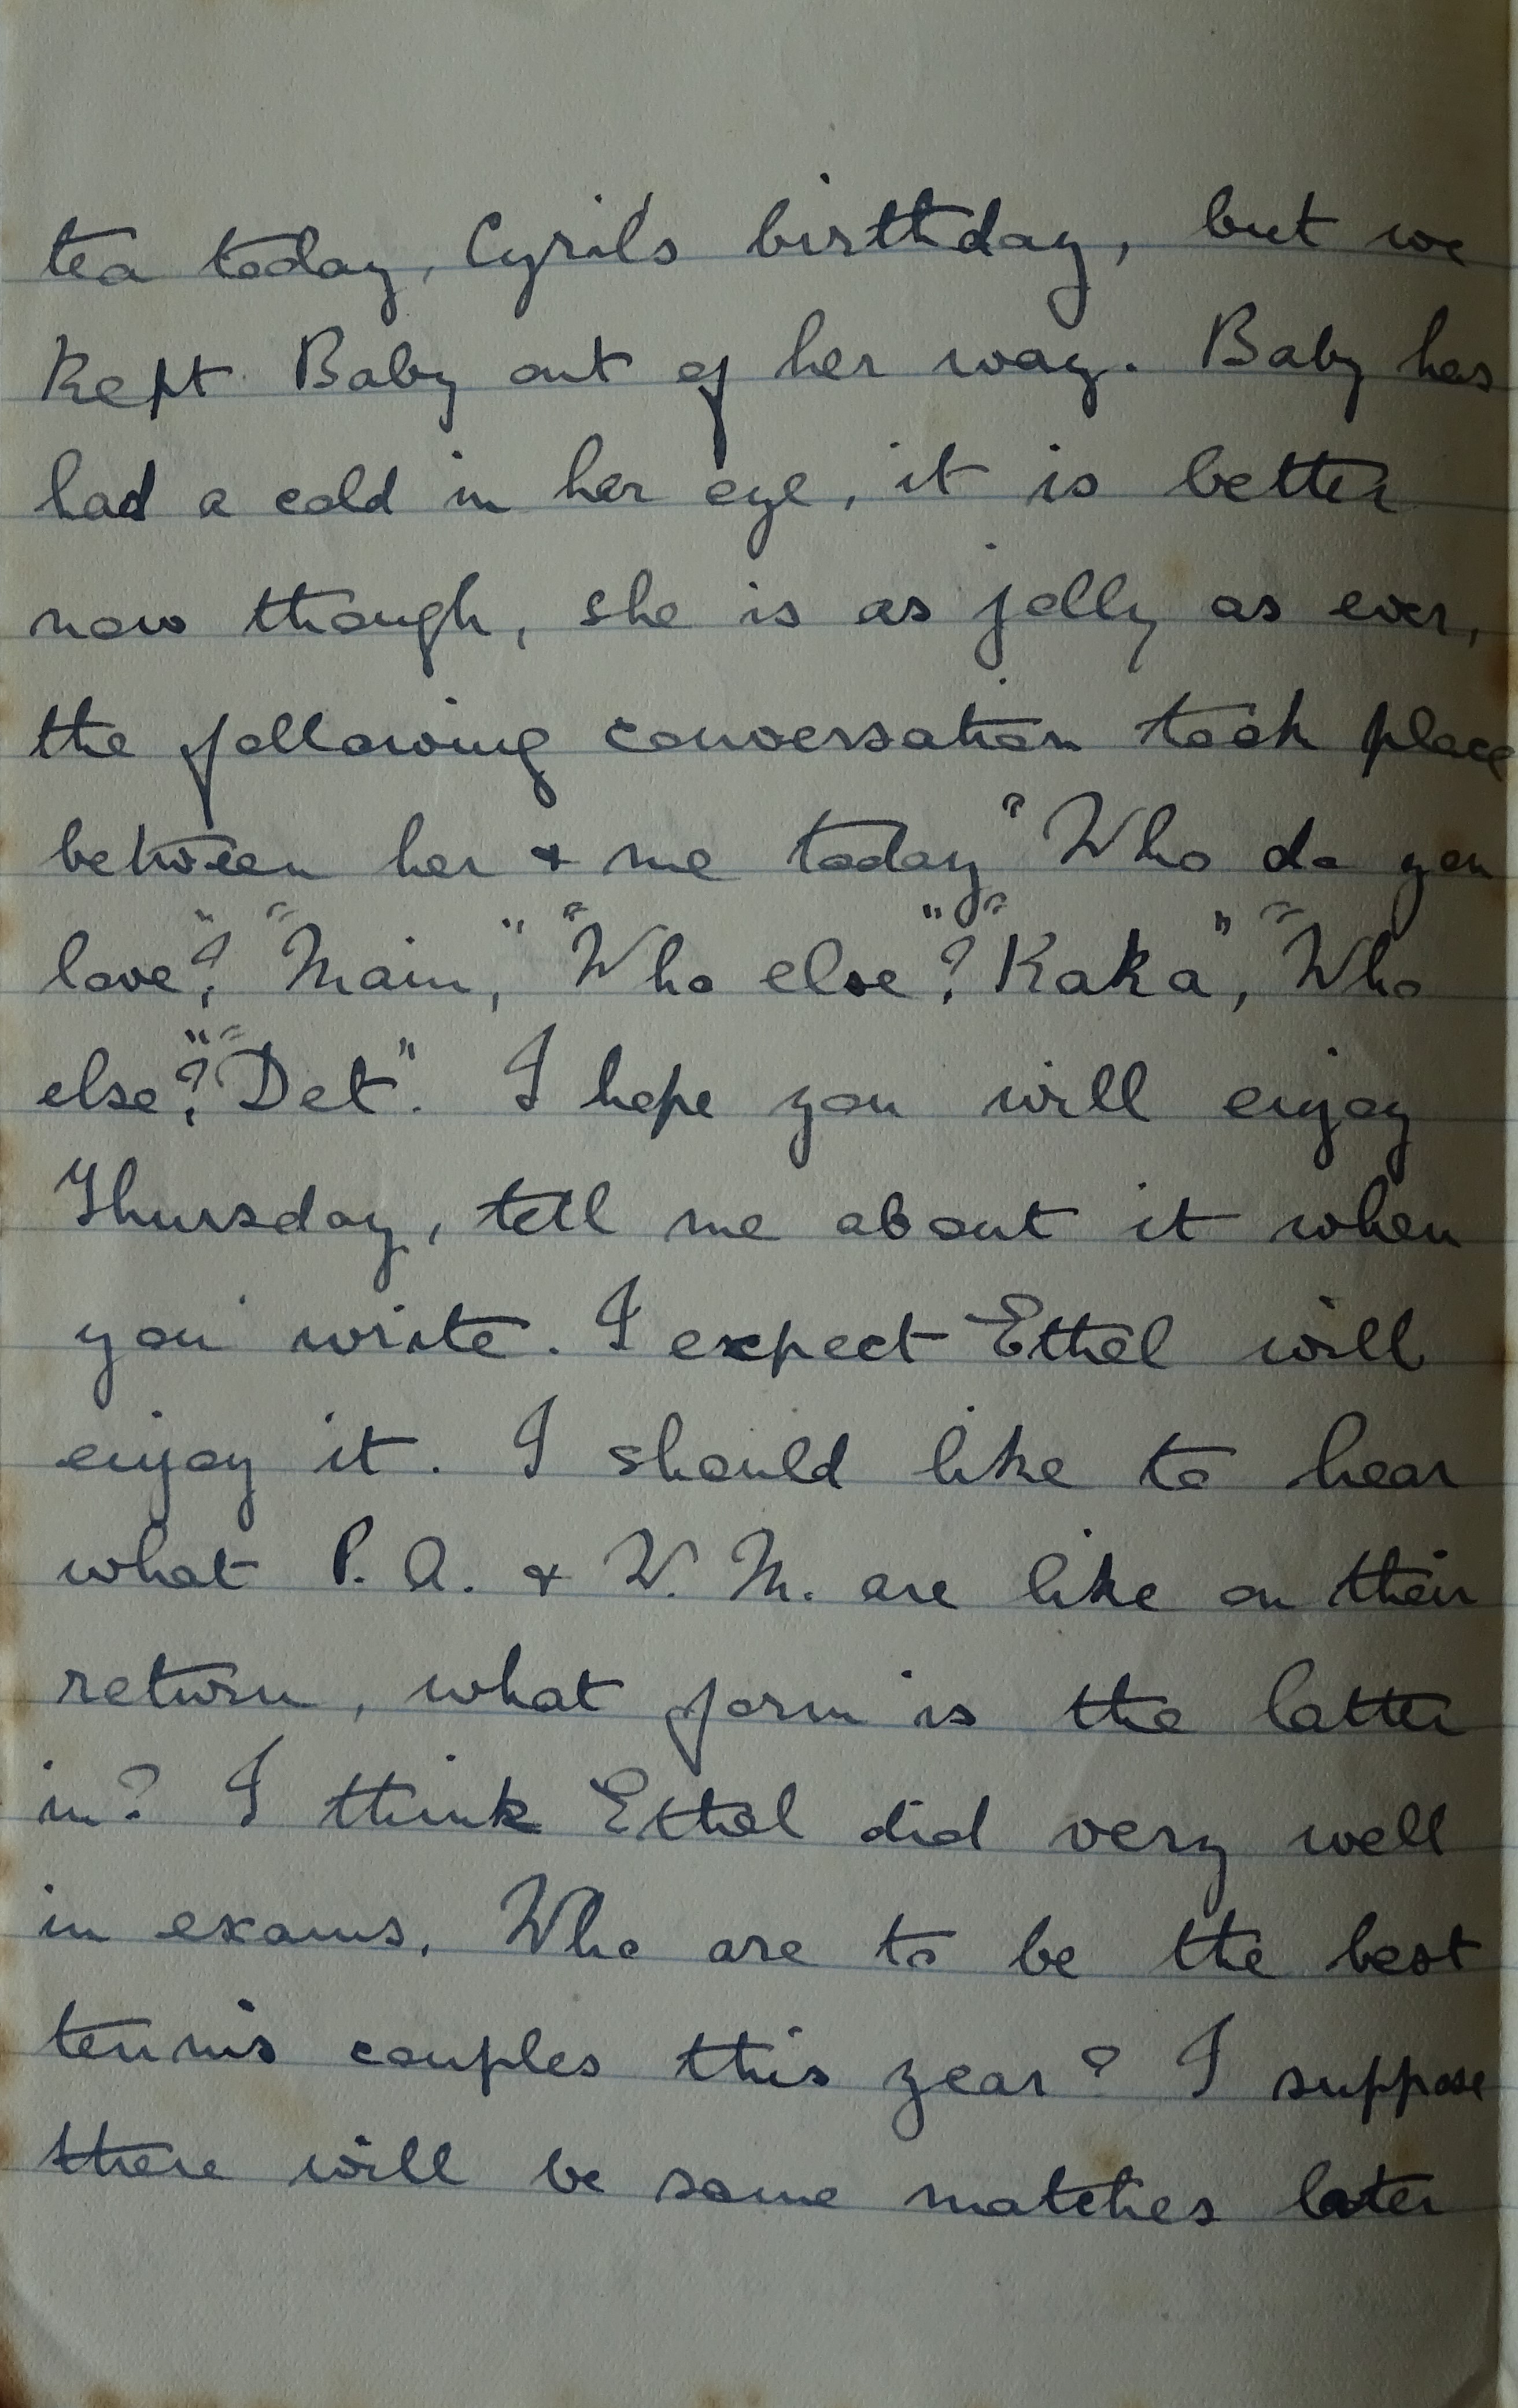 tea today, Cyril's birthday, but we
kept Baby out of her way. Baby has
had a cold in her eye, it is better
now though, she is as jolly as ever,
the following conversation took place
between her & me today "Who do you
love"? "Maim", "Who else"? "Kaka", "Who
else"? "Det". I hope you will enjoy
Thursday, tell me about it when
you write. I expect Ethel will
enjoy it. I should like to hear
what P. A. & W. M. are like on their
return, what form is the latter
in? I think Ethel did very well
in exams. Who are to be the best
tennis couples this year? I suppose
there will be some matches later